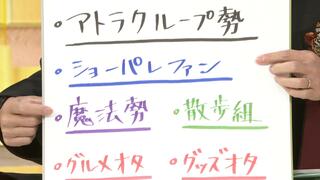 ・アトラクループ勢
・ショーパレファン
・魔法勢 ・散歩組
・グルメオタ ・グッズオタ